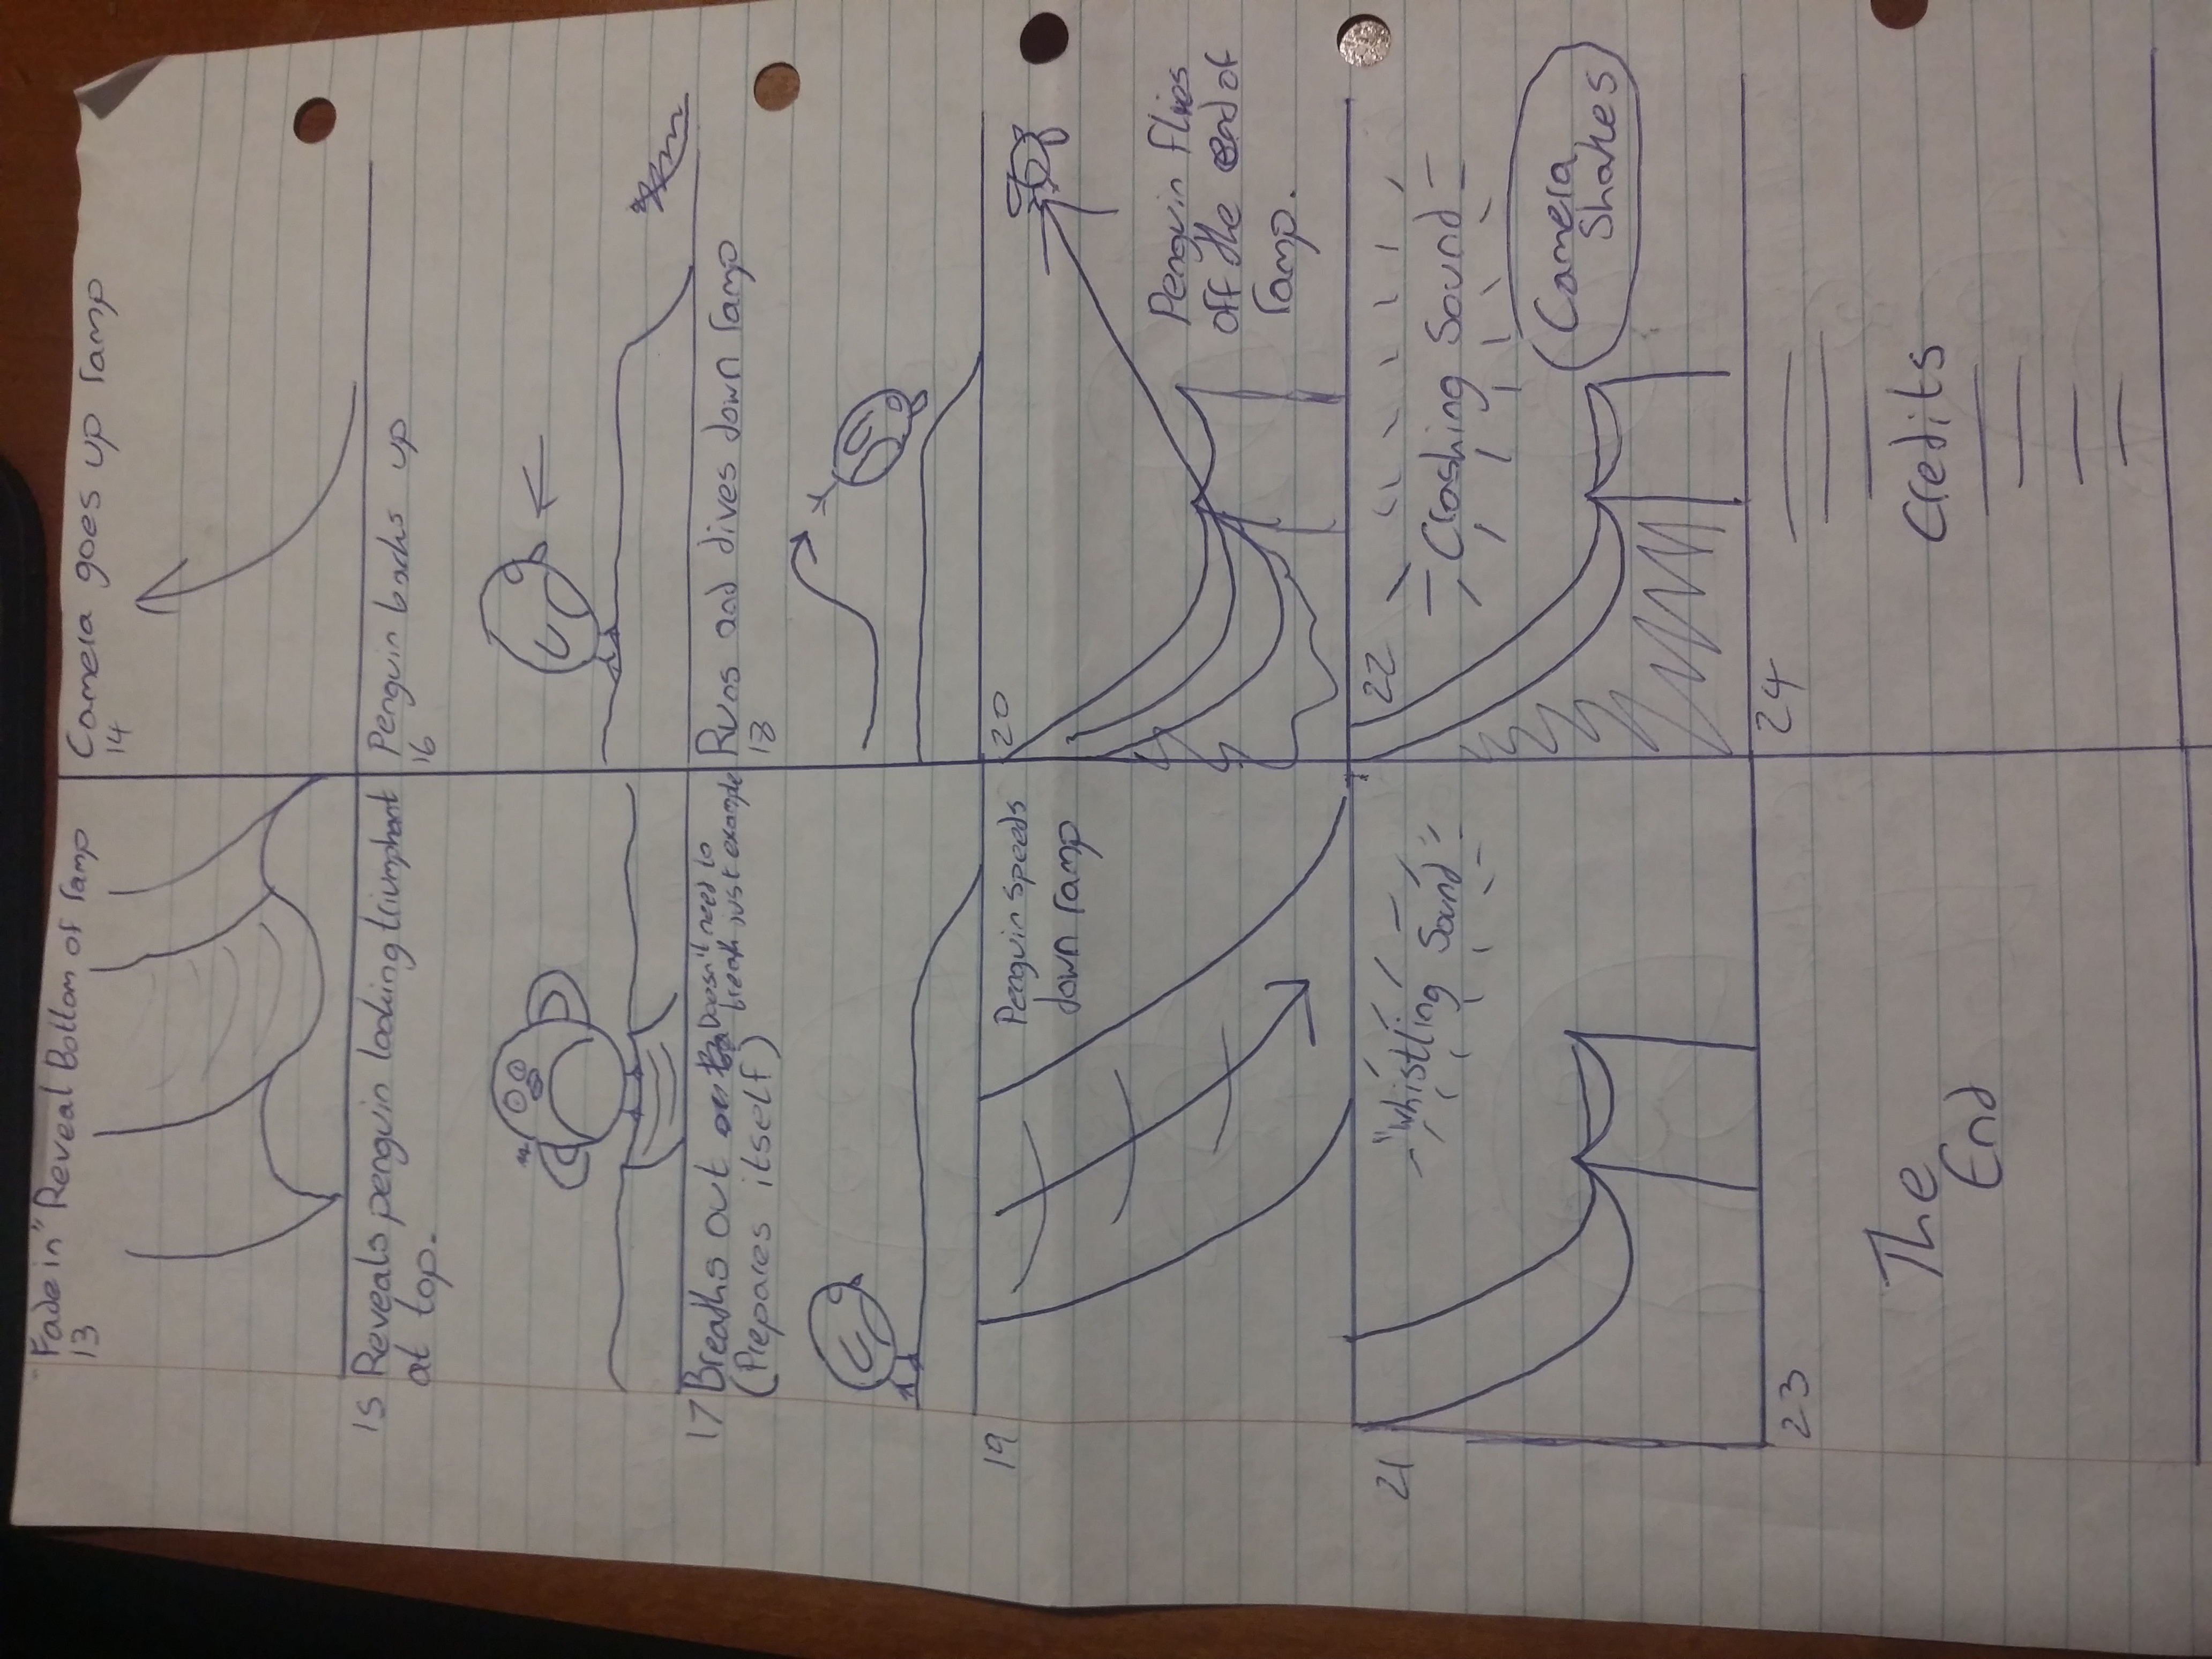 Fade in" Reveal Bottom of ramp
13
Camera goes up ramp
14
15 Reveals penguin looking triumphant
at top.
Penguin backs up
16
17 Breaths out Doesn't need to
break just example
(Prepares itself)
Runs and dives down ramp
18
19
Penguin speeds
down ramp
20
Penguin flies
off the end of
ramp.
21
"Whistling Sound"
22
Crashing Sound
Camera
Shakes
23
The
End
24
Credits